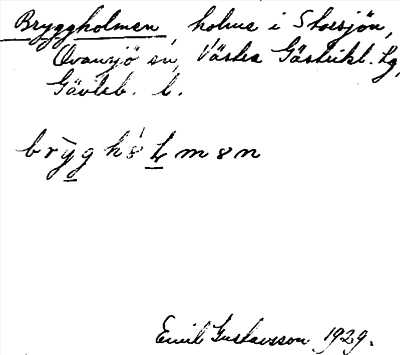 Bryggholmen, holme i Storsjön,
Ovansjö sn, Västra Gästrikl. tg,
Gävleb. l.
Emil Gustavsson 1929.